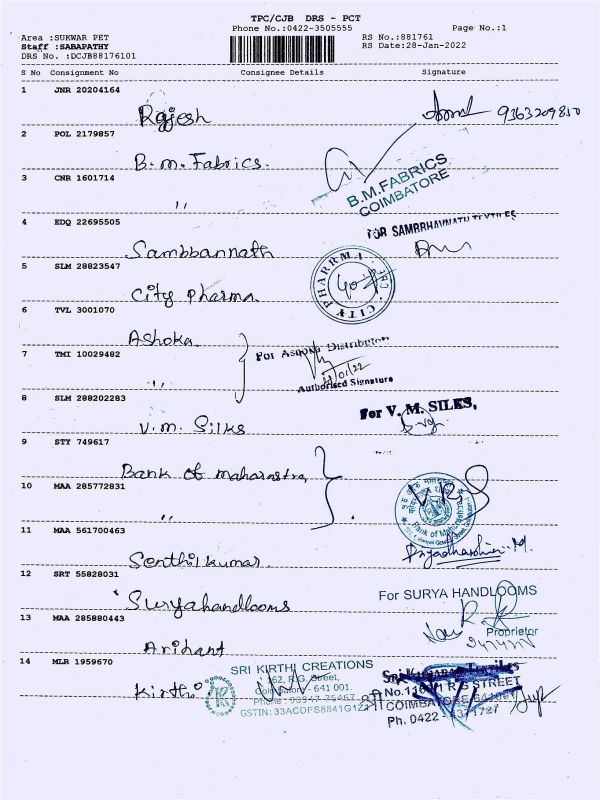 TPC/CJB DRS - PCT
Phone No.:0422-3505555
Page No.:1
Area :SUKWAR PET
RS No.:881761
Staff :SABAPATHY
RS Date:28-Jan-2022
DRS No. :DCJB88176101
S No Consignment No Consignee Details Signature
1 JNR 20204164
Rajesh 9363209850
2 POL 2179857
B.M. Fabrics.
B.M.FABRICS
COIMBATORE
3 CNR 1601714
"
4 EDQ 22695505
FOR SAMBBHAVNATH TEXTILES
Sambbannath
5 SLM 28823547
City Pharma.
CITY PHARRMA CBE
6 TVL 3001070
Ashoka.
7 TMI 10029482
"
For Ashoka Distributor
Authorised Signature
8 SLM 288202283
V.M. Silks
For V. M. SILKS,
9 STY 749617
Bank of maharastra
10 MAA 285772831
"
Bank of Maharashtra
11 MAA 561700463
Senthilkumar.
Priyadharshini. M.
12 SRT 55828031
Suryahandlooms
For SURYA HANDLOOMS
Proprietor
13 MAA 285880443
Arihant
14 MLR 1959670
Kirthi
SRI KIRTHI CREATIONS
162, R.G. Street,
Coimbatore - 641 001.
GSTIN: 33ACDFS8841G1Z1
R G STREET
COIMBATORE
Ph. 0422 -